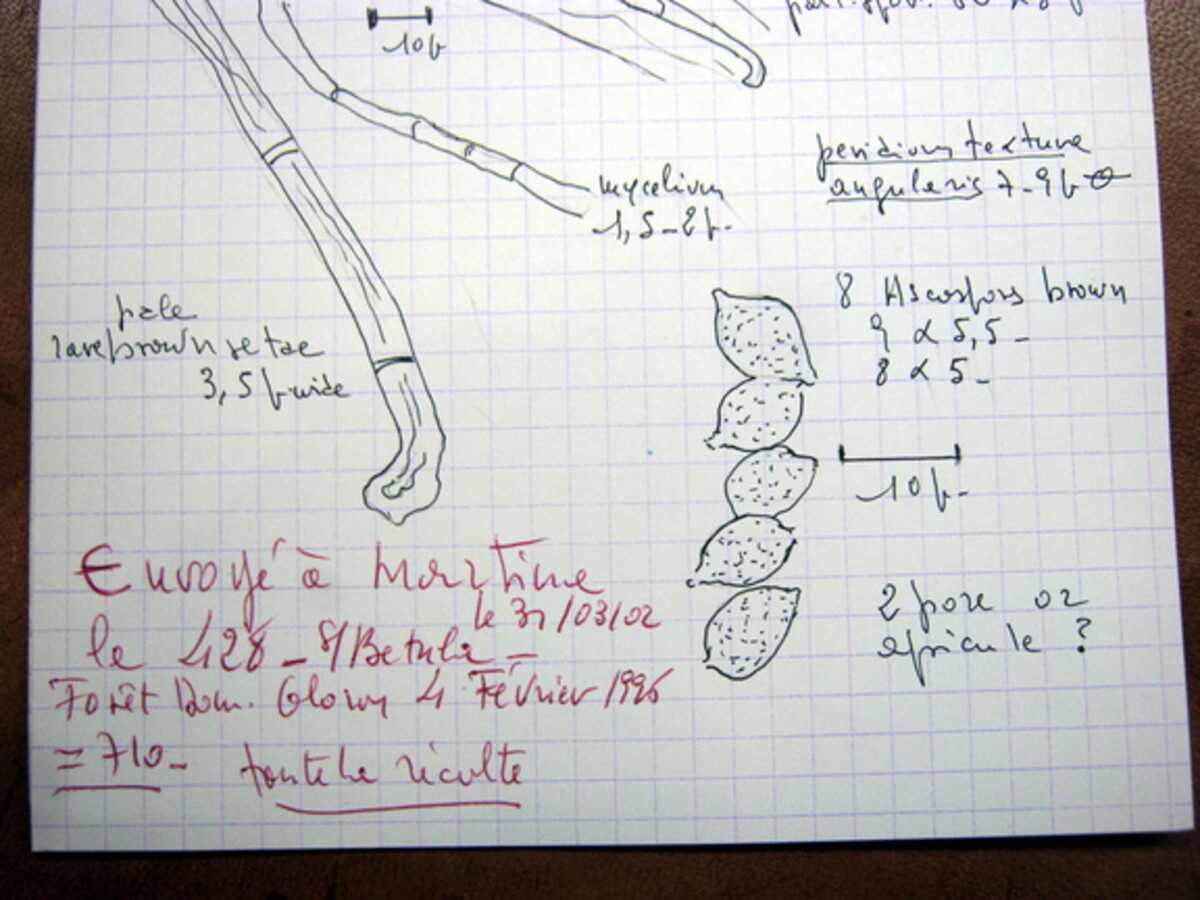 10µ
mycelium
1,5-2µ-
peridium textura
angularis 7-9µ
8 Ascospors brown
9 x 5,5-
8 x 5-
pale
brown setae
3,5µ wide
10µ-
2 pore or
apicule ?
Envoyé à Martine
le 31/03/02
le 428 - S/Betula -
Forêt Dom. 4 Février 1996
= 710-
toute la récolte